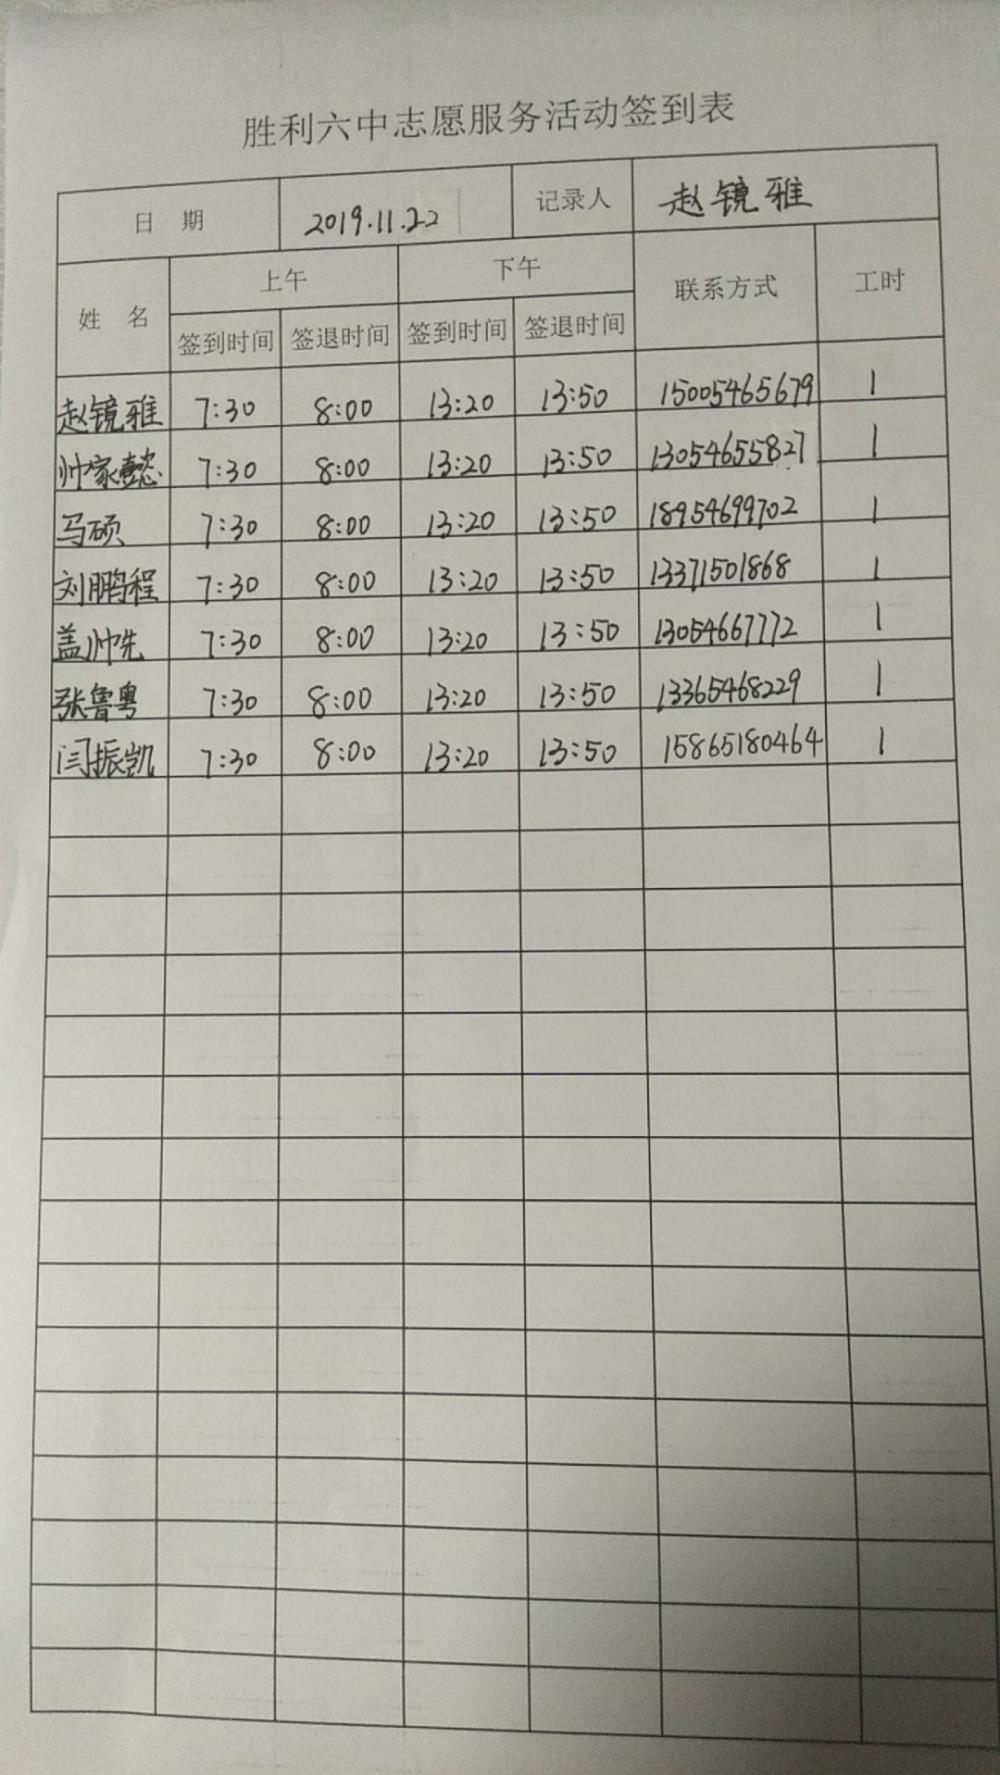 胜利六中志愿服务活动签到表
日 期 2019.11.22 记录人 赵镜雅
姓 名 上午 下午 联系方式 工时
签到时间 签退时间 签到时间 签退时间
赵镜雅 7:30 8:00 13:20 13:50 15005465679 1
帅家懿 7:30 8:00 13:20 13:50 13054655827 1
马硕 7:30 8:00 13:20 13:50 18954699702 1
刘鹏程 7:30 8:00 13:20 13:50 13371501868 1
盖帅先 7:30 8:00 13:20 13:50 13054667772 1
张鲁粤 7:30 8:00 13:20 13:50 13365468229 1
闫振凯 7:30 8:00 13:20 13:50 15865180464 1